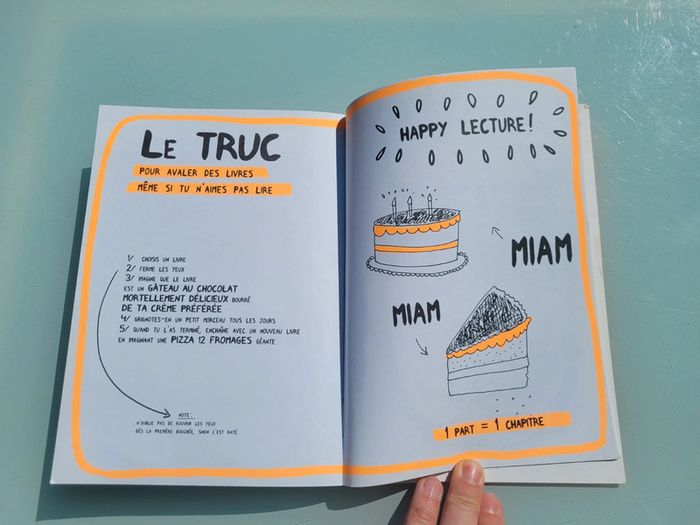 LE TRUC
POUR AVALER DES LIVRES
MÊME SI TU N'AIMES PAS LIRE
1/ CHOISIS UN LIVRE
2/ FERME LES YEUX
3/ IMAGINE QUE LE LIVRE
EST UN GÂTEAU AU CHOCOLAT
MORTELLEMENT DÉLICIEUX BOURRÉ
DE TA CRÈME PRÉFÉRÉE
4/ GRIGNOTES-EN UN PETIT MORCEAU TOUS LES JOURS
5/ QUAND TU L'AS TERMINÉ, ENCHAÎNE AVEC UN NOUVEAU LIVRE
EN IMAGINANT UNE PIZZA 12 FROMAGES GÉANTE
NOTE:
N'OUBLIE PAS DE ROUVRIR LES YEUX
DÈS LA PREMIÈRE BOUCHÉE, SINON C'EST RATÉ
HAPPY LECTURE!
MIAM
MIAM
1 PART = 1 CHAPITRE